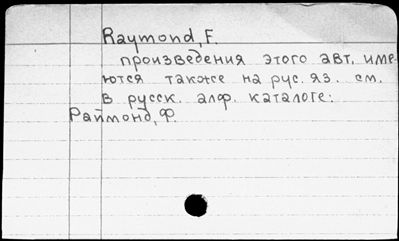 Raymond, F.
произведения этого авт. име-
ются также на рус. яз. см.
в русск. алф. каталоге:
Раймонд, Ф.